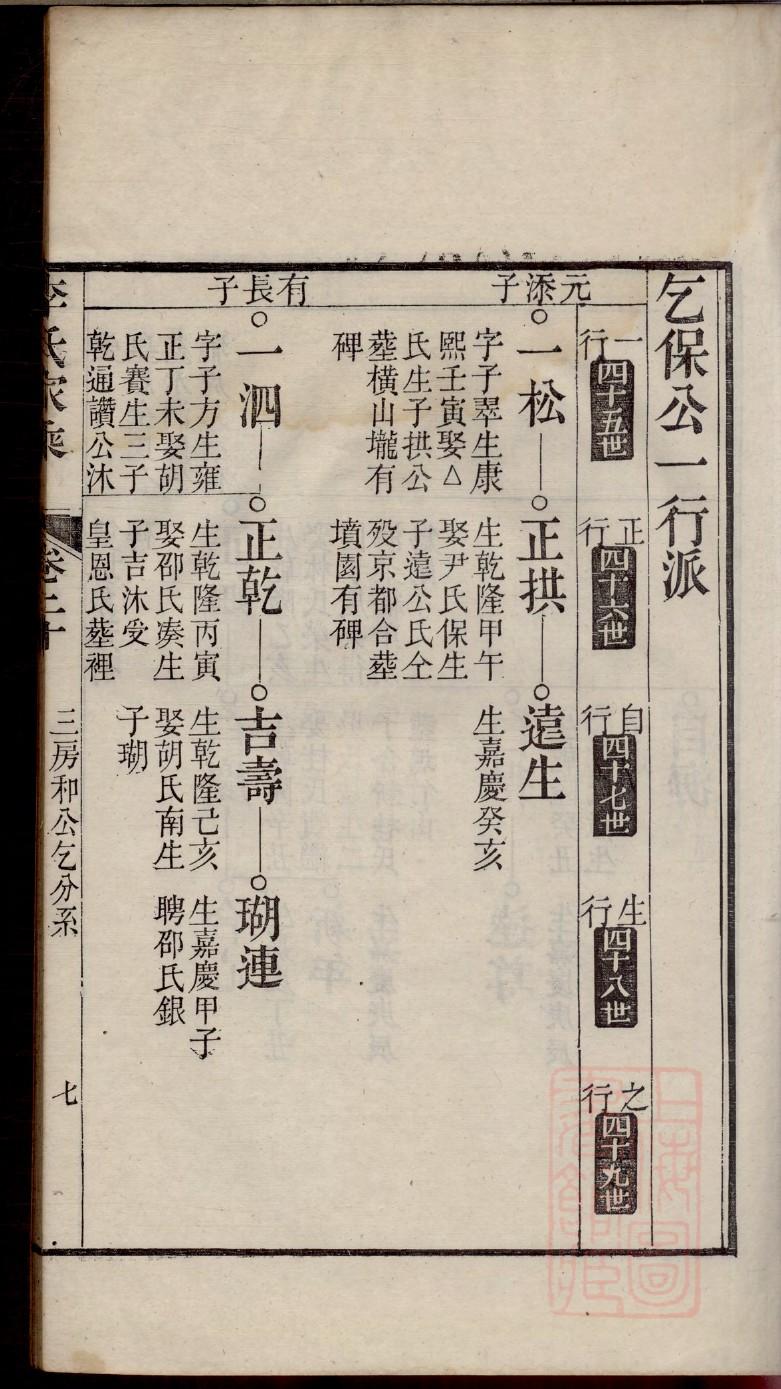 乞保公一行派
一行
四十五世
正行
四十六世
自行
四十七世
生行
四十八世
之行
四十九世
元添子
一松
字子翠生康
熙壬寅娶△
氏生子拱公
塟橫山壠有
碑
正拱
生乾隆甲午
娶尹氏保生
子遠公氏仝
歿京都合塟
墳園有碑
遠生
生嘉慶癸亥
有長子
一泗
字子方生雍
正丁未娶胡
氏賽生三子
乾通讚公沐
皇恩氏塟裡
正乾
生乾隆丙寅
娶邵氏凑生
子吉沐受
吉壽
生乾隆己亥
娶胡氏南生
子瑚
瑚連
生嘉慶甲子
聘邵氏銀
李氏家乘
卷二十
三房和公乞分系
七